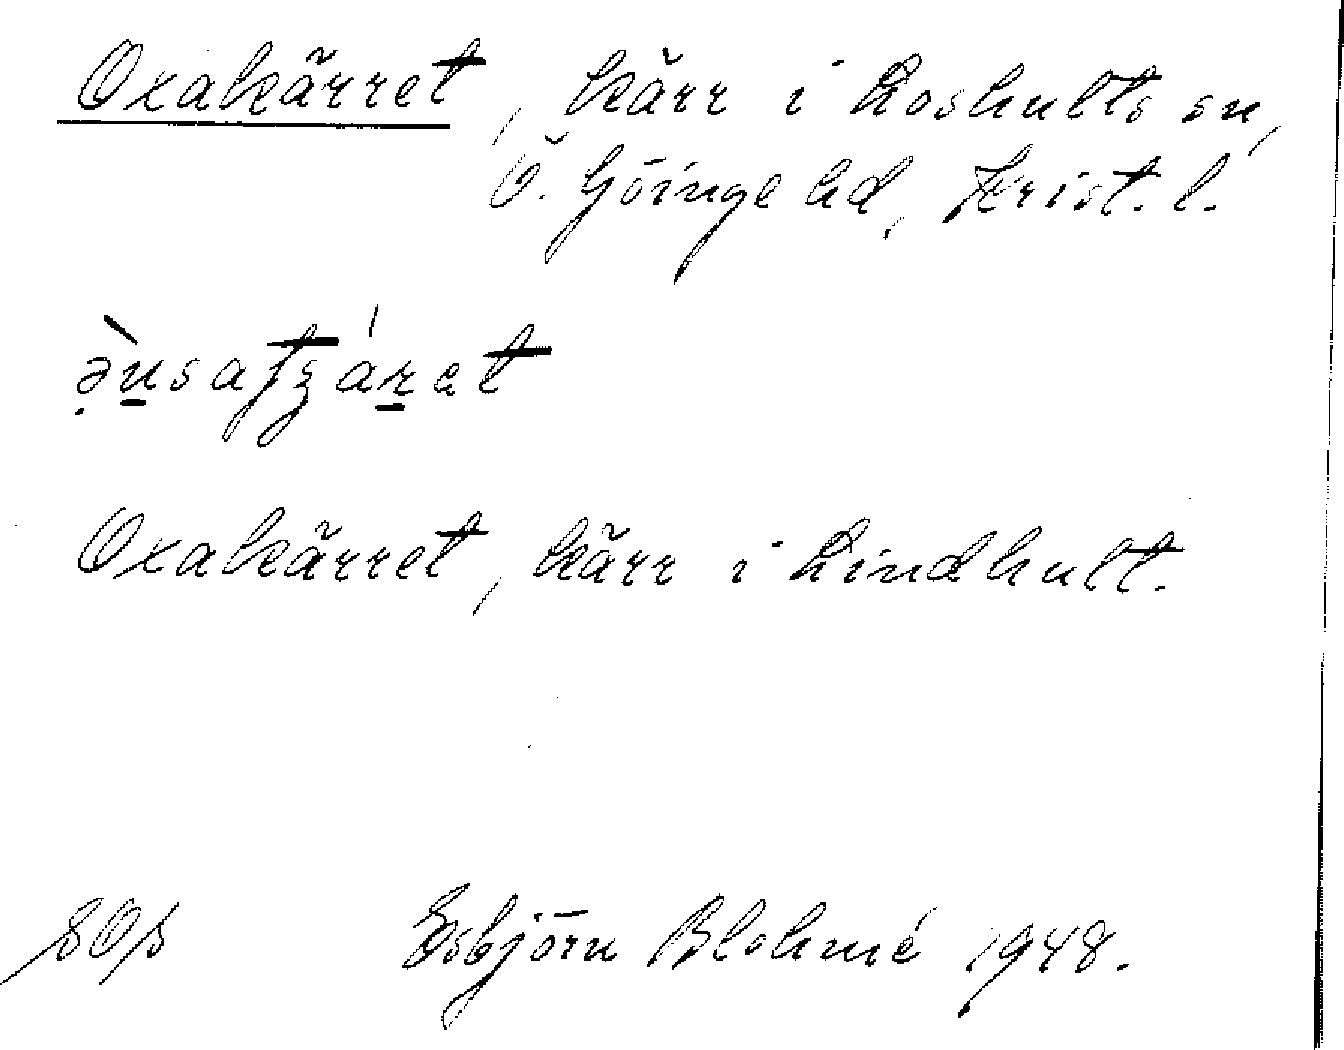 Oxakärret, kärr i Loshults sn,
Ö. Göinge hd, Krist. l.
Oxakärret, kärr i Lindhult.
Esbjörn Blohmé 1948.